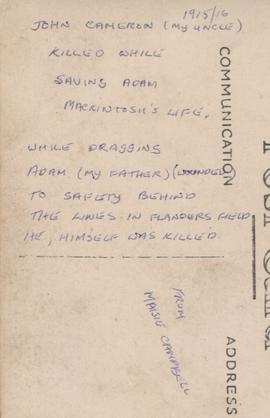 1915/16
JOHN CAMERON (MY UNCLE)
KILLED WHILE
SAVING ADAM
MACKINTOSH'S LIFE,
WHILE DRAGGING
ADAM (MY FATHER) (WOUNDED)
TO SAFETY BEHIND
THE LINES. IN FLANDERS FIELD
HE, HIMSELF WAS KILLED.
FROM
MAISIE CAMPBELL
COMMUNICATION
POST CARD
ADDRESS